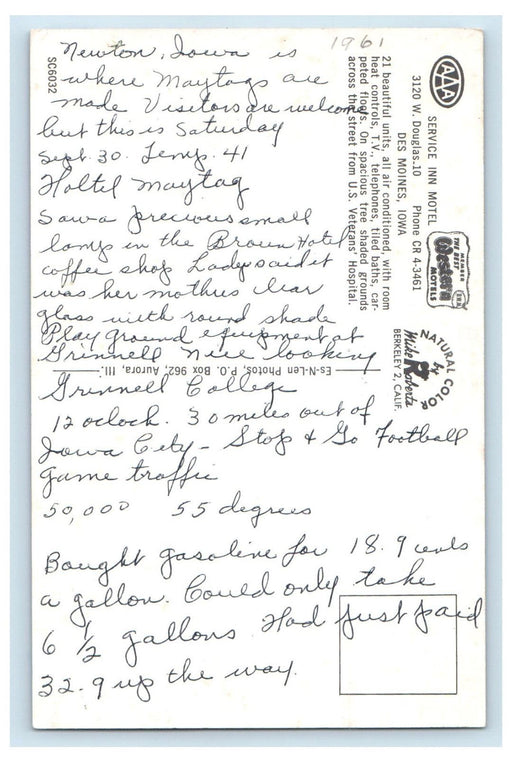 1961
Newton, Iowa is
where Maytags are
made Visitors are welcome
but this is Saturday
Sept. 30. Temp. 41
Hotel Maytag
Saw a precious small
lamp in the Brown Hotel
coffee shop Lady said it
was her mothers clear
glass with round shade
Play ground equipment at
Grinnell nice looking
Grinnell College
12 oclock. 30 miles out of
Iowa City - Stop & Go Football
game traffic
50,000 55 degrees
Bought gasoline for 18.9 cents
a gallon. Could only take
6 1/2 gallons. Had just paid
32.9 up the way.
SC6032
AAA
SERVICE INN MOTEL
3120 W. Douglas-10 Phone CR 4-3461
DES MOINES, IOWA
21 beautiful units, all air conditioned, with room
heat controls, T.V., telephones, tiled baths, car-
peted floors. On spacious tree shaded grounds
across the street from U.S. Veterans' Hospital.
MEMBER
THE BEST
Western
MOTELS
NATURAL COLOR
by
Mike Roberts
BERKELEY 2, CALIF.
Es-N-Len Photos, P.O. Box 962, Aurora, Ill.